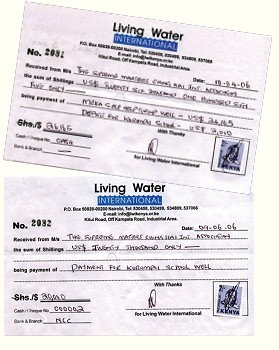 Living Water
INTERNATIONAL
P.O. Box 50838-00200 Nairobi, Tel: 530498, 530499, 534809, 537066
E-mail: info@lwikenya.or.ke
Kitui Road, Off Kampala Road, Industrial Area.
No. 2081
Date: 10-04-06
Received from M/s THE SUPREME MASTER CHING HAI INT. ASSOCIATION
the sum of Shillings US$ TWENTY SIX THOUSAND ONE HUNDRED SIXTY
FIVE ONLY
being payment of WELL US$
DEPOSIT FOR SCHOOL - US$
Shs./$ 26165
Cash / Cheque No CASH
Bank & Branch
With Thanks
for Living Water International
Living Water
INTERNATIONAL
P.O. Box 50838-00200 Nairobi, Tel: 530498, 530499, 534809, 537066
E-mail: info@lwikenya.or.ke
Kitui Road, Off Kampala Road, Industrial Area.
No. 2082
Date: 09-06-06
Received from M/s THE SUPREME MASTER CHING HAI INT. ASSOCIATION
the sum of Shillings US$ TWENTY THOUSAND ONLY
being payment of PAYMENT FOR SCHOOL WELL
Shs./$
Cash / Cheque No 000002
Bank & Branch
With Thanks
for Living Water International
KENYA